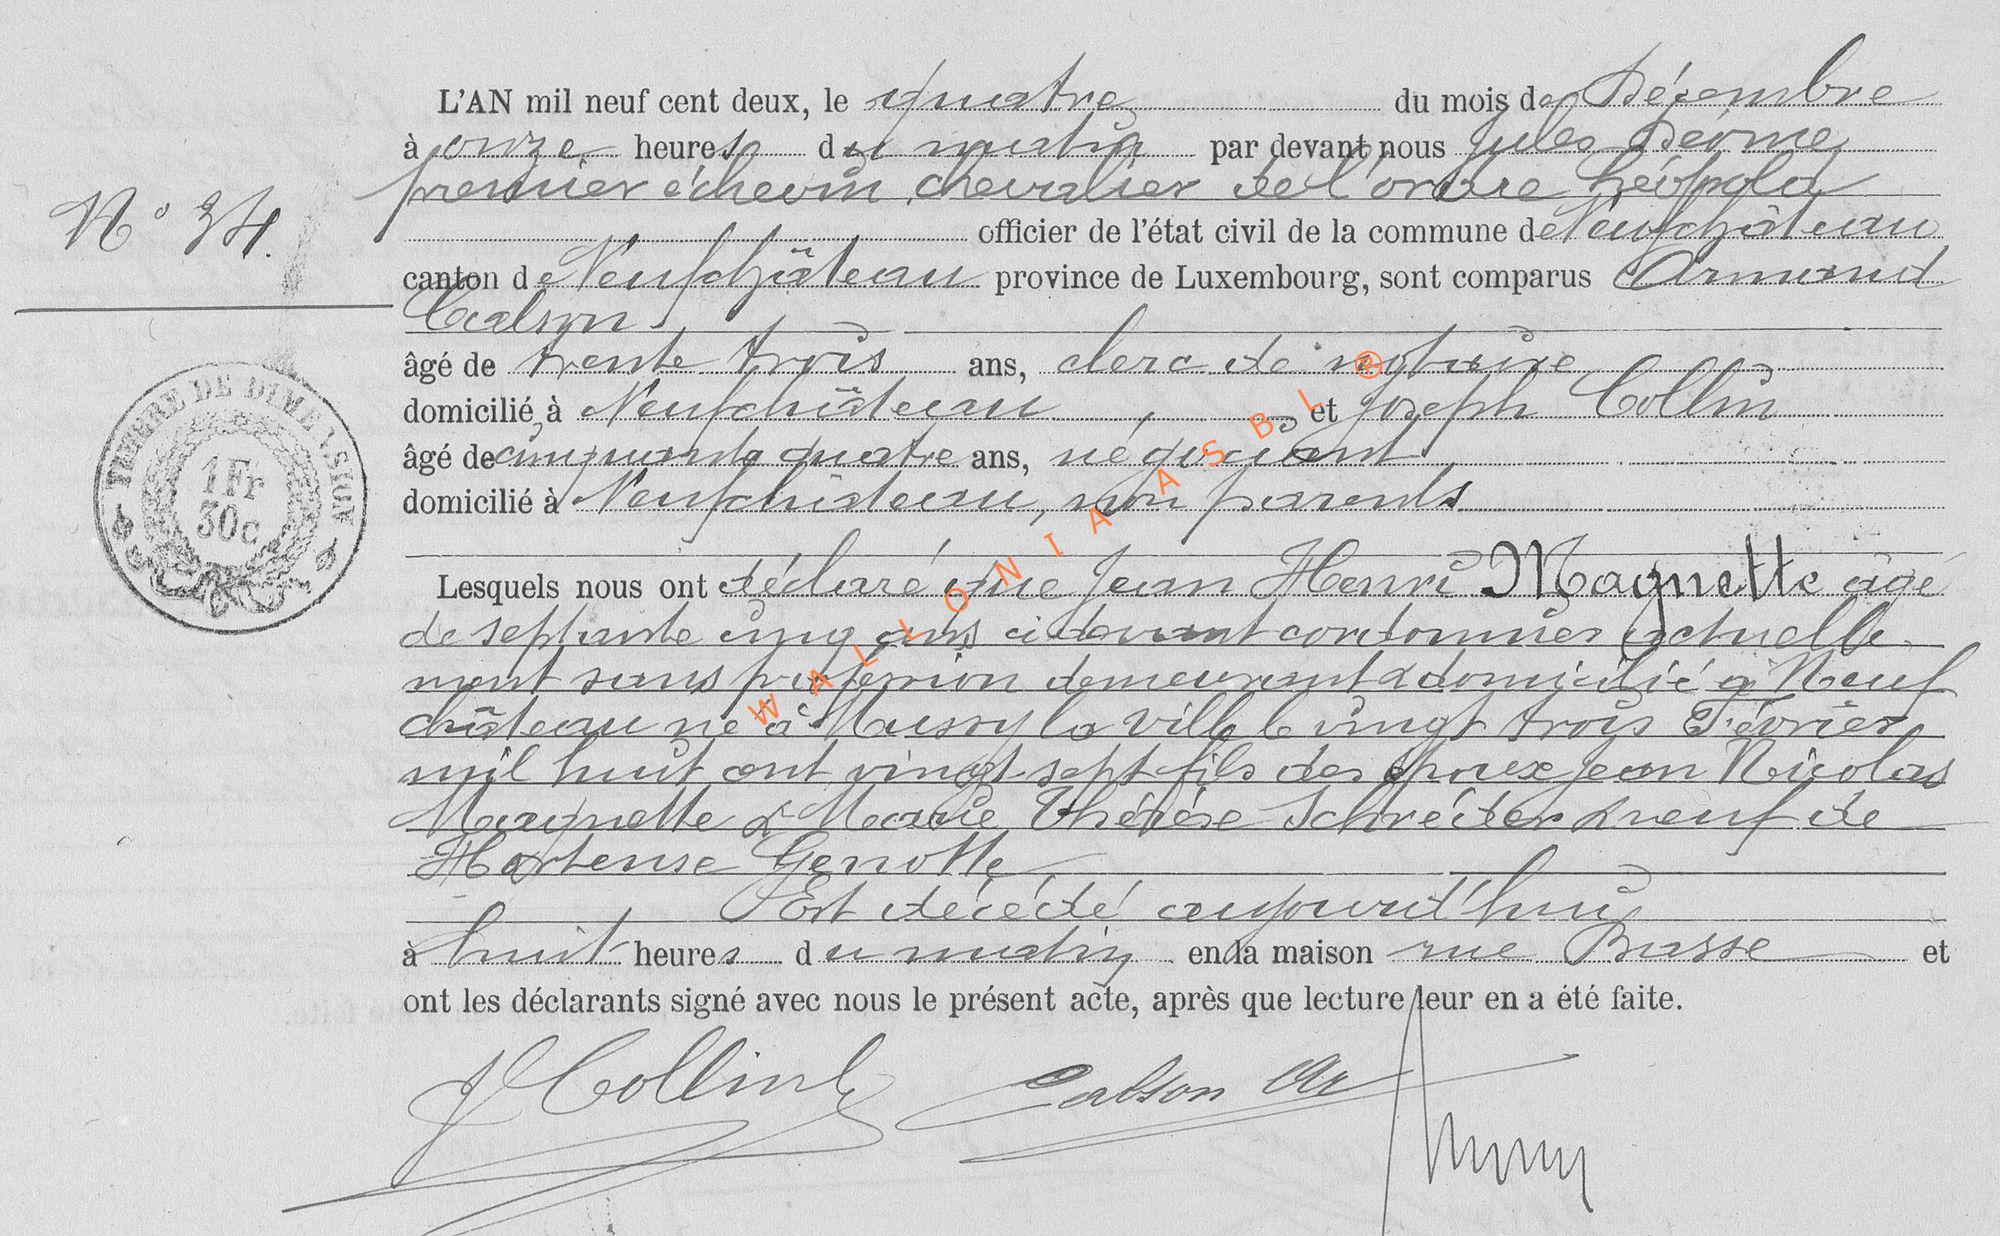 L'AN mil neuf cent deux, le quatre du mois de Décembre
à onze heures du matin par devant nous Jules
premier échevin, chevalier de l'ordre Léopold
N° 34.
officier de l'état civil de la commune de Neufchâteau,
canton de Neufchâteau province de Luxembourg, sont comparus Armand
Calson
âgé de trente trois ans, clerc de notaire
domicilié à Neufchâteau, et Joseph Collin
âgé de cinquante quatre ans, négociant
domicilié à Neufchâteau, non parents
TIMBRE DE DIMENSION
1 Fr
30 c
Lesquels nous ont déclaré que Jean Henri Magnette âgé
de septante cinq ans ci devant cordonnier actuelle
ment sans profession demeurant & domicilié à Neuf
château né à Mussy la Ville le vingt trois Février
mil huit cent vingt-sept fils des époux Jean Nicolas
Magnette & Marie Thérèse Schréder veuf de
Hortense Genotte
Est décédé aujourd'hui
à huit heures du matin en la maison rue Basse et
ont les déclarants signé avec nous le présent acte, après que lecture leur en a été faite.
J Collin Calson Ar
WALLONIA ASBL ®